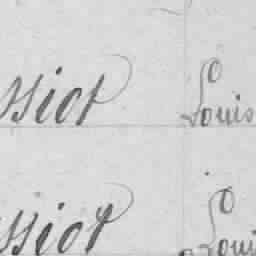 ssiot Louis
ssiot Louis